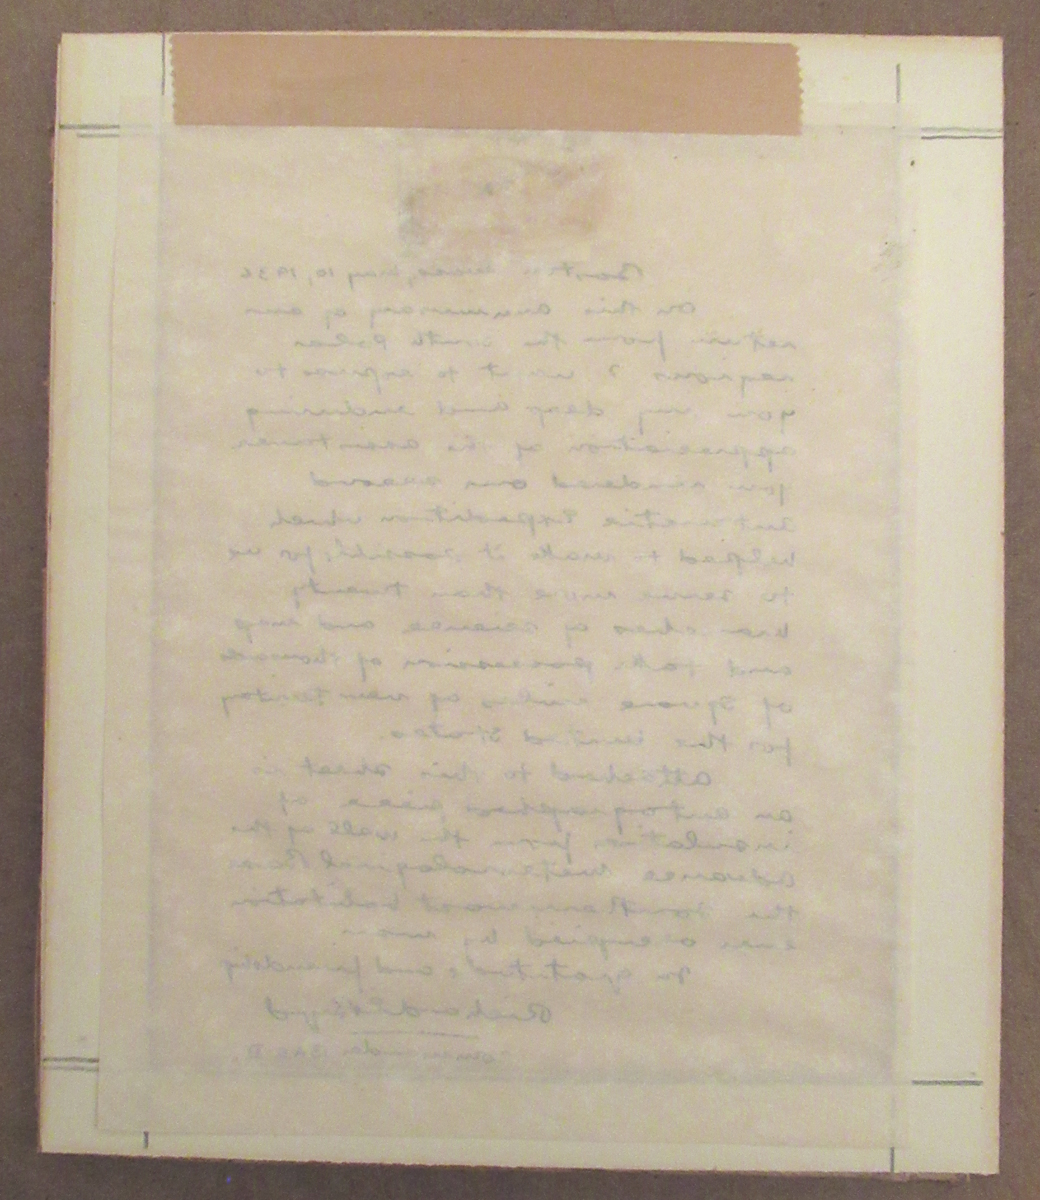 Boston Mass, May 10, 1936
On this anniversary of our
return from the south Polar
regions I want to express to
you my deep and enduring
appreciation of the assistance
you rendered our second
Antarctic Expedition which
helped to make it possible for us
to serve more than twenty
branches of science and map
and take possession of thousands
of square miles of new territory
for the United States.
Attached to this sheet is
an autographed piece of
insulation from the walls of the
Advance Meteorological Base
the Southernmost habitation
ever occupied by man
In gratitude and friendship
Richard E Byrd
Commander BAE II.